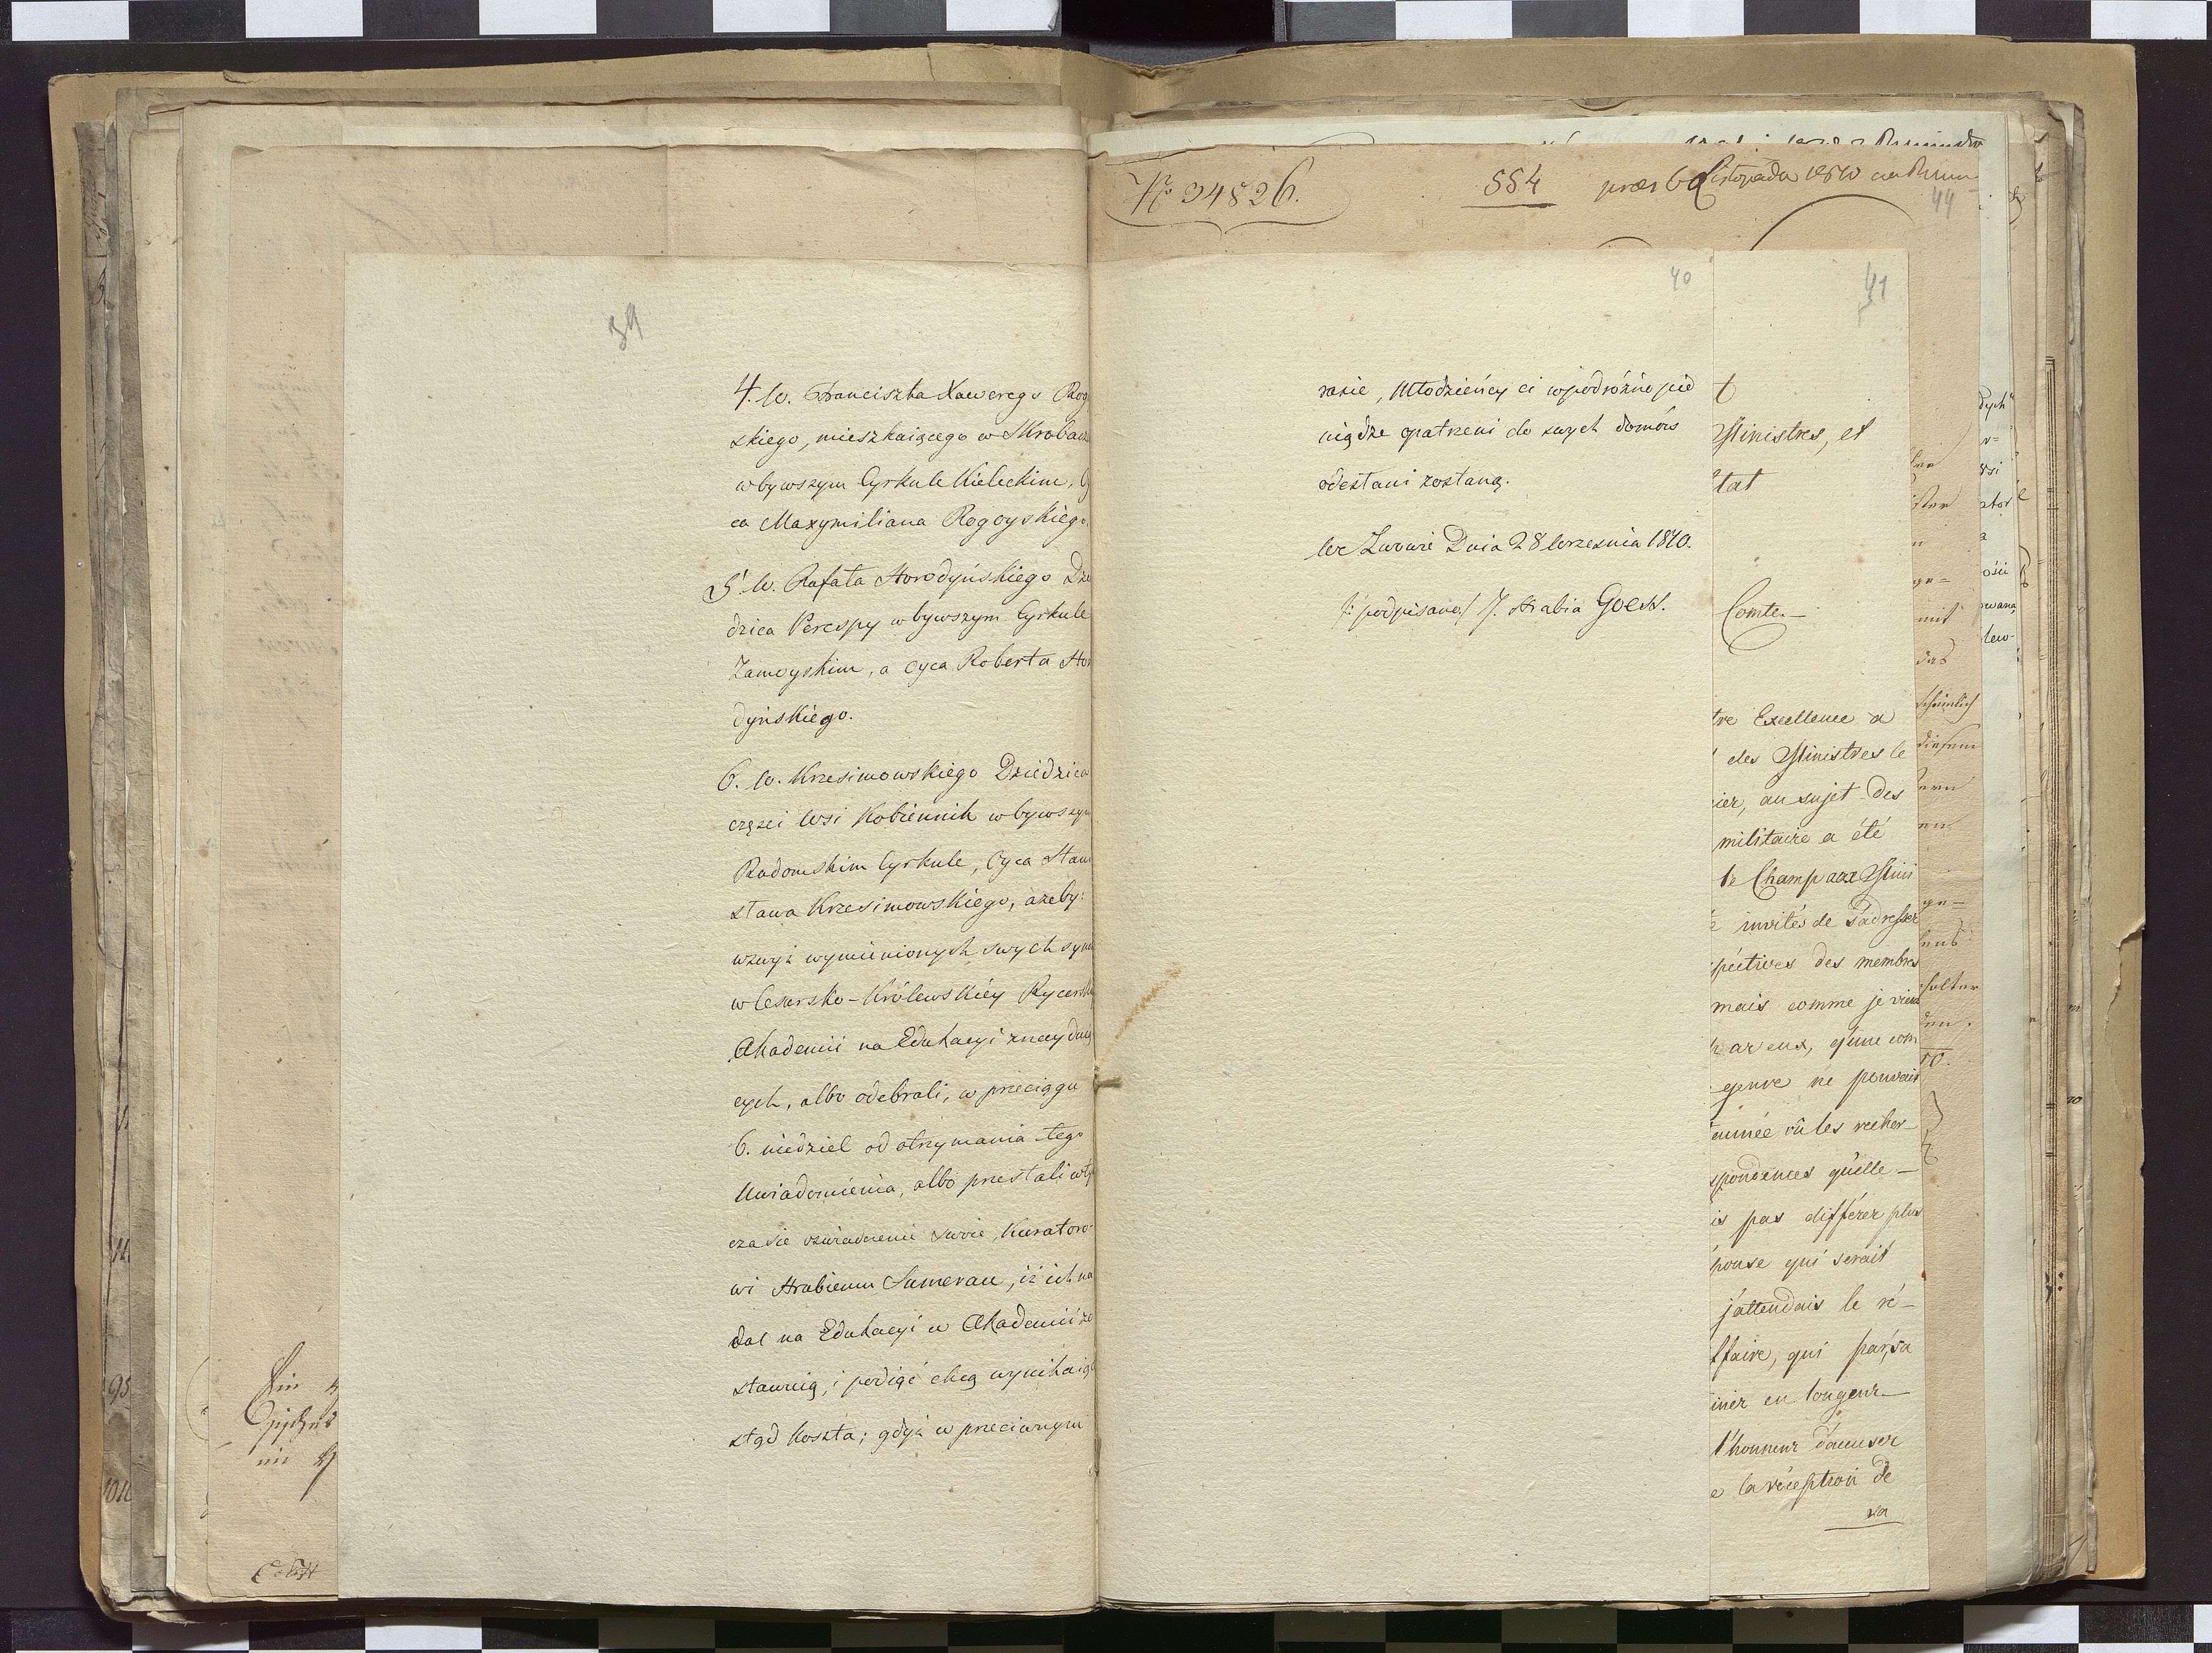 39
4. W. Franciszka Xawerego Rog
skiego, mieszkaiącego w Skrobac
w bywszym Cyrkule Kieleckim, Oy
ca Maxymiliana Rogoyskiego.
5. W. Rafała Horodyńskiego Dzie
dzica Perespy w bywszym Cyrkule
Zamoyskim, a Oyca Roberta Hor
dyńskiego.
6. W. Krzesimowskiego Dziedzica
części Wsi Kobiennik w bywszym
Radomskim Cyrkule, Oyca Stani
sława Krzesimowskiego, ażeby:
wzwyż wymienionych swych syn
w Cesarsko-Królewskiéy Rycersk
Akademii na Edukacyi znayduią
cych, albo odebrali, w przeciągu
6. niedziel od otrzymania tego
Uwiadomienia, albo przesłali w ty
czasie oświadczenie swoie, Kuratoro-
wi Hrabiemu Sumerau, iż ich na
dal na Edukacyi w Akademii zo
stawuią, i podiąć chcą wynikaiąc
ztąd koszta; gdyż w przeciwnym
Nro 34826.
554 præs 6 Listopada 1810
44
40
razie, Młodzieńcy ci w podróżne pie
niądze opatrzeni do swych domów
odesłani zostaną.
We Lwowie Dnia 28 Września 1810.
/: podpisano / J. Hrabia Goess.
41
t
Ministres, et
tat
Comte.—
tre Excellence a
des Ministres le
ier, au sujet des
militaire a été
de Champaux Mini
invités de s'adresser
pectives des membres
mais comme je viens
par eux, qu'une com
genre ne pouvait
année où les recher-
spondences qu'elle—
is pas différer plus
ponse qui serait
j'attendais le ré-
ffaire, qui par sa
iner en longeur—
l'honneur d'accuser
e la réception de
sa
mit
das